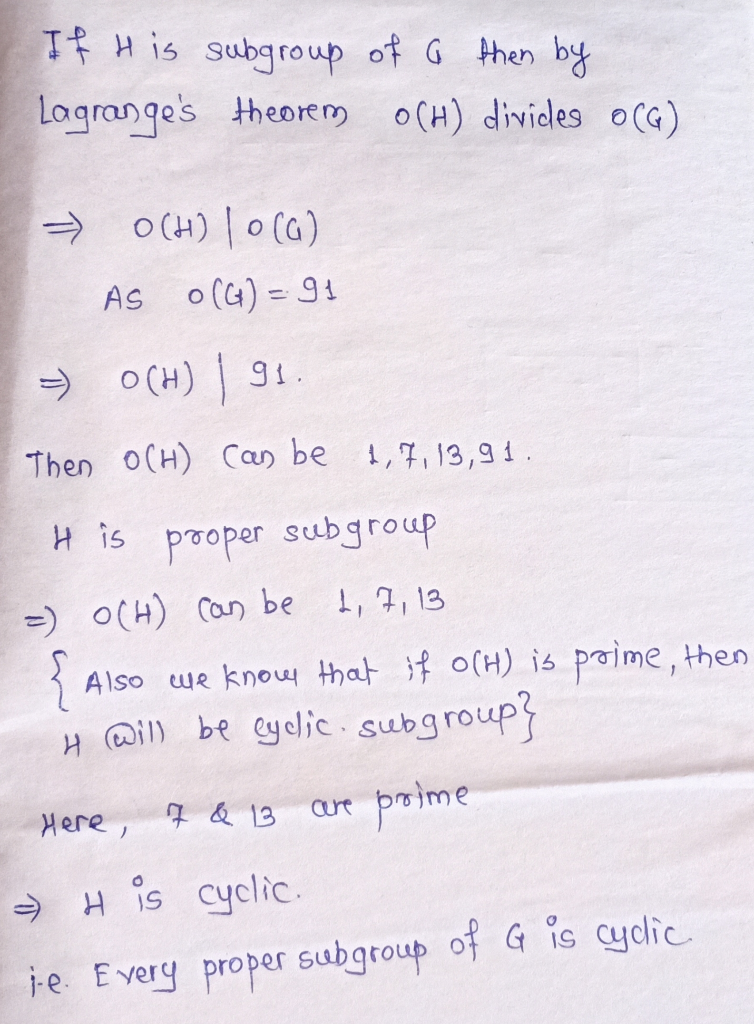 If H is subgroup of G then by
Lagrange's theorem o(H) divides o(G)
⇒ o(H) | o(G)
As o(G) = 91
⇒ o(H) | 91.
Then o(H) can be 1, 7, 13, 91.
H is proper subgroup
⇒ o(H) can be 1, 7, 13
{ Also we know that if o(H) is prime, then
H will be cyclic. subgroup}
Here, 7 & 13 are prime
⇒ H is cyclic.
i.e. Every proper subgroup of G is cyclic